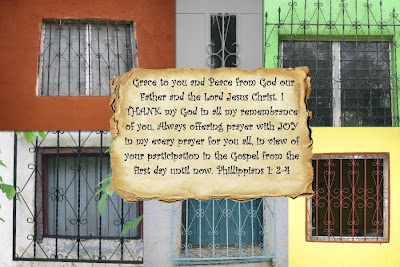 Grace to you and Peace from God our
Father and the Lord Jesus Christ. I
THANK my God in all my remembrance
of you, Always offering prayer with JOY
in my every prayer for you all, in view of
your participation in the Gospel from the
first day until now. Phillippians 1: 2-4